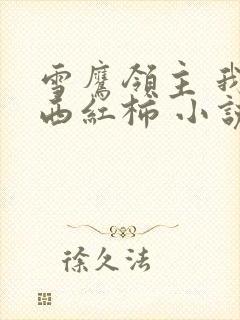 雪鹰領主 我
西紅柿 小説
徐久法